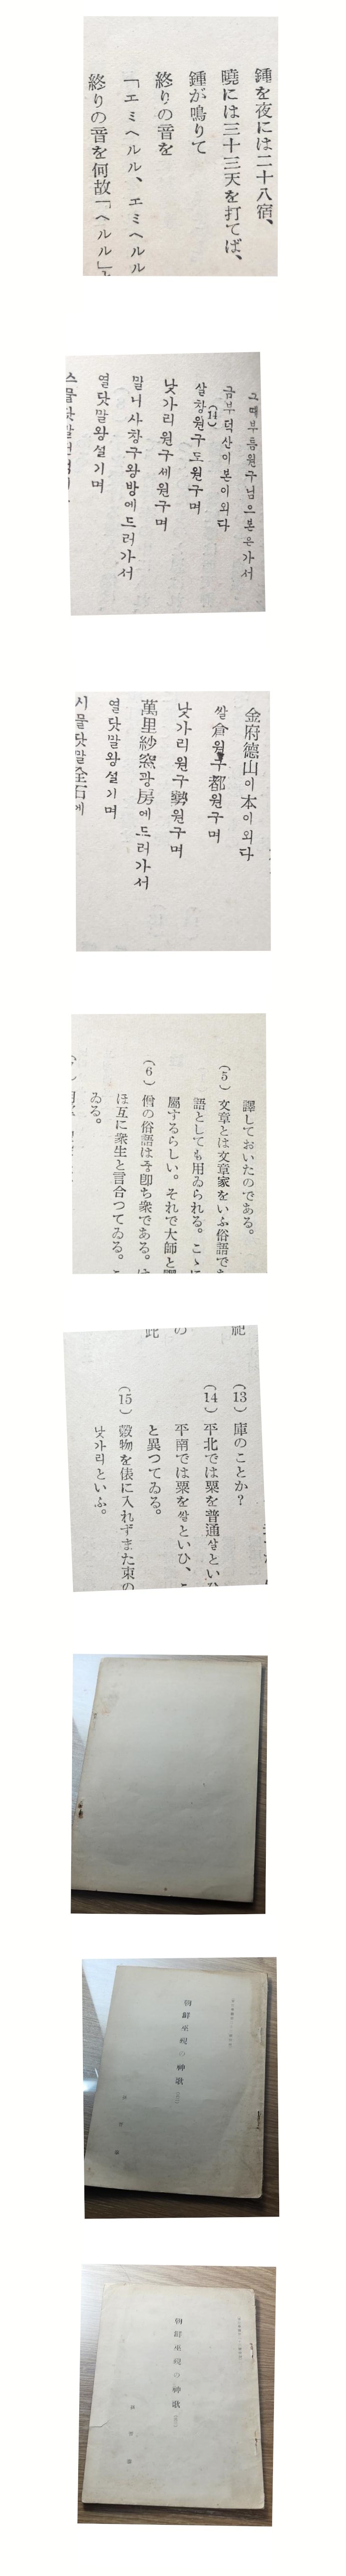 鍾を夜には二十八宿、
曉には三十三天を打てば、
鍾が鳴りて
終りの音を
「エミヘルル、エミヘルル
終りの音を何故「ヘルル」
그때부틈원구님으본은가서
금부덕산이본이외다
(14)
살창원구도원구며
낫가리원구세원구며
말니사창구왕방에드러가서
열닷말왕설기며
金府德山이本이외다
쌀倉원구都원구며
낫가리원구勢원구며
萬里紗窓광房에드러가서
열닷말왕설기며
譯しておいたのである。
(5) 文章とは文章家をいふ俗語で
語としても用ゐられる。こゝに
屬するらしい。それで大師と
(6) 僧の俗語は중卽ち衆である。
ほ互に衆生と言合つてゐる。こ
ゐる。
(13) 庫のことか?
(14) 平北では粟を普通살とい
平南では粟を쌀といひ、
と異つてゐる。
(15) 穀物を俵に入れずまた束の
낫가리といふ。
朝鮮巫覡の神歌
朝鮮巫覡の神歌